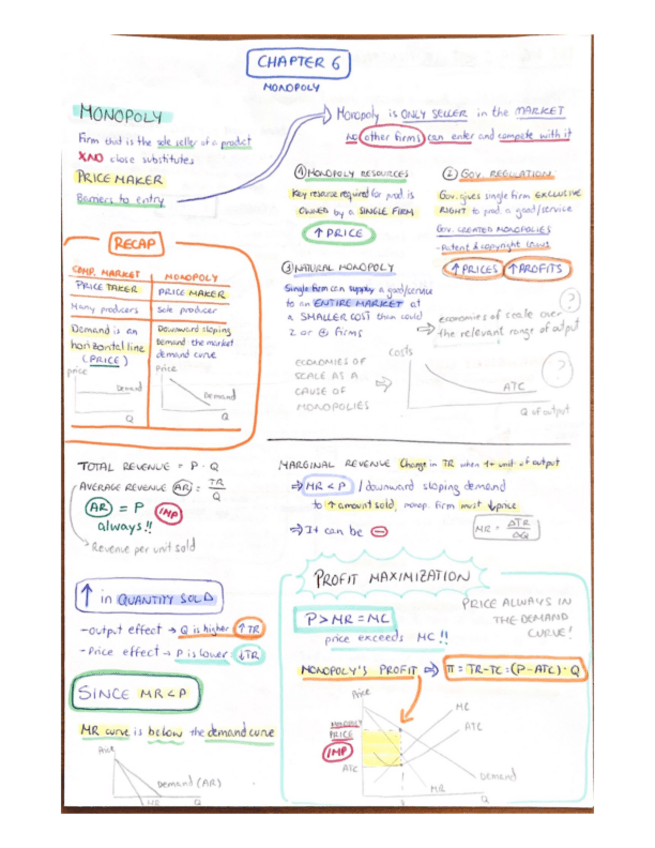 CHAPTER 6
MONOPOLY
MONOPOLY
Firm that is the sole seller of a product
XNO close substitutes
PRICE MAKER
Barriers to entry
Monopoly is ONLY SELLER in the MARKET
NO other firms can enter and compete with it
① MONOPOLY RESOURCES
Key resource required for prod. is
OWNED by a SINGLE FIRM
↑ PRICE
② GOV. REGULATION
Gov. gives single firm EXCLUSIVE
RIGHT to prod. a good/service
GOV. CREATED MONOPOLIES
- Patent & copyright laws
↑ PRICES ↑ PROFITS
③ NATURAL MONOPOLY
Single firm can supply a good/service
to an ENTIRE MARKET at
a SMALLER COST than could
2 or ⊕ firms
⇒ economies of scale over
the relevant range of output
?
ECONOMIES OF
SCALE AS A
CAUSE OF
MONOPOLIES
⇒
Costs
ATC
Q of output
?
RECAP
COMP. MARKET
MONOPOLY
PRICE TAKER
PRICE MAKER
Many producers
Sole producer
Demand is an
horizontal line
(PRICE)
Downward sloping
Demand the market
demand curve
Price
Demand
Q
Price
Demand
Q
TOTAL REVENUE = P · Q
AVERAGE REVENUE (AR) = TR
Q
AR = P IMP
always!!
Revenue per unit sold
MARGINAL REVENUE Change in TR when 1+ unit of output
⇒ MR < P / downward sloping demand
to ↑ amount sold, monop. firm must ↓ price
⇒ It can be ⊖
MR = ΔTR
ΔQ
↑ in QUANTITY SOLD
- Output effect → Q is higher ↑TR
- Price effect → P is lower ↓TR
SINCE MR < P
MR curve is below the demand curve
Price
Demand (AR)
MR
Q
PROFIT MAXIMIZATION
P > MR = MC
price exceeds MC!!
PRICE ALWAYS IN
THE DEMAND
CURVE!
MONOPOLY'S PROFIT ⇒ π = TR-TC = (P-ATC) · Q
Price
MONOPOLY
PRICE
IMP
ATC
MC
ATC
Demand
MR
Q